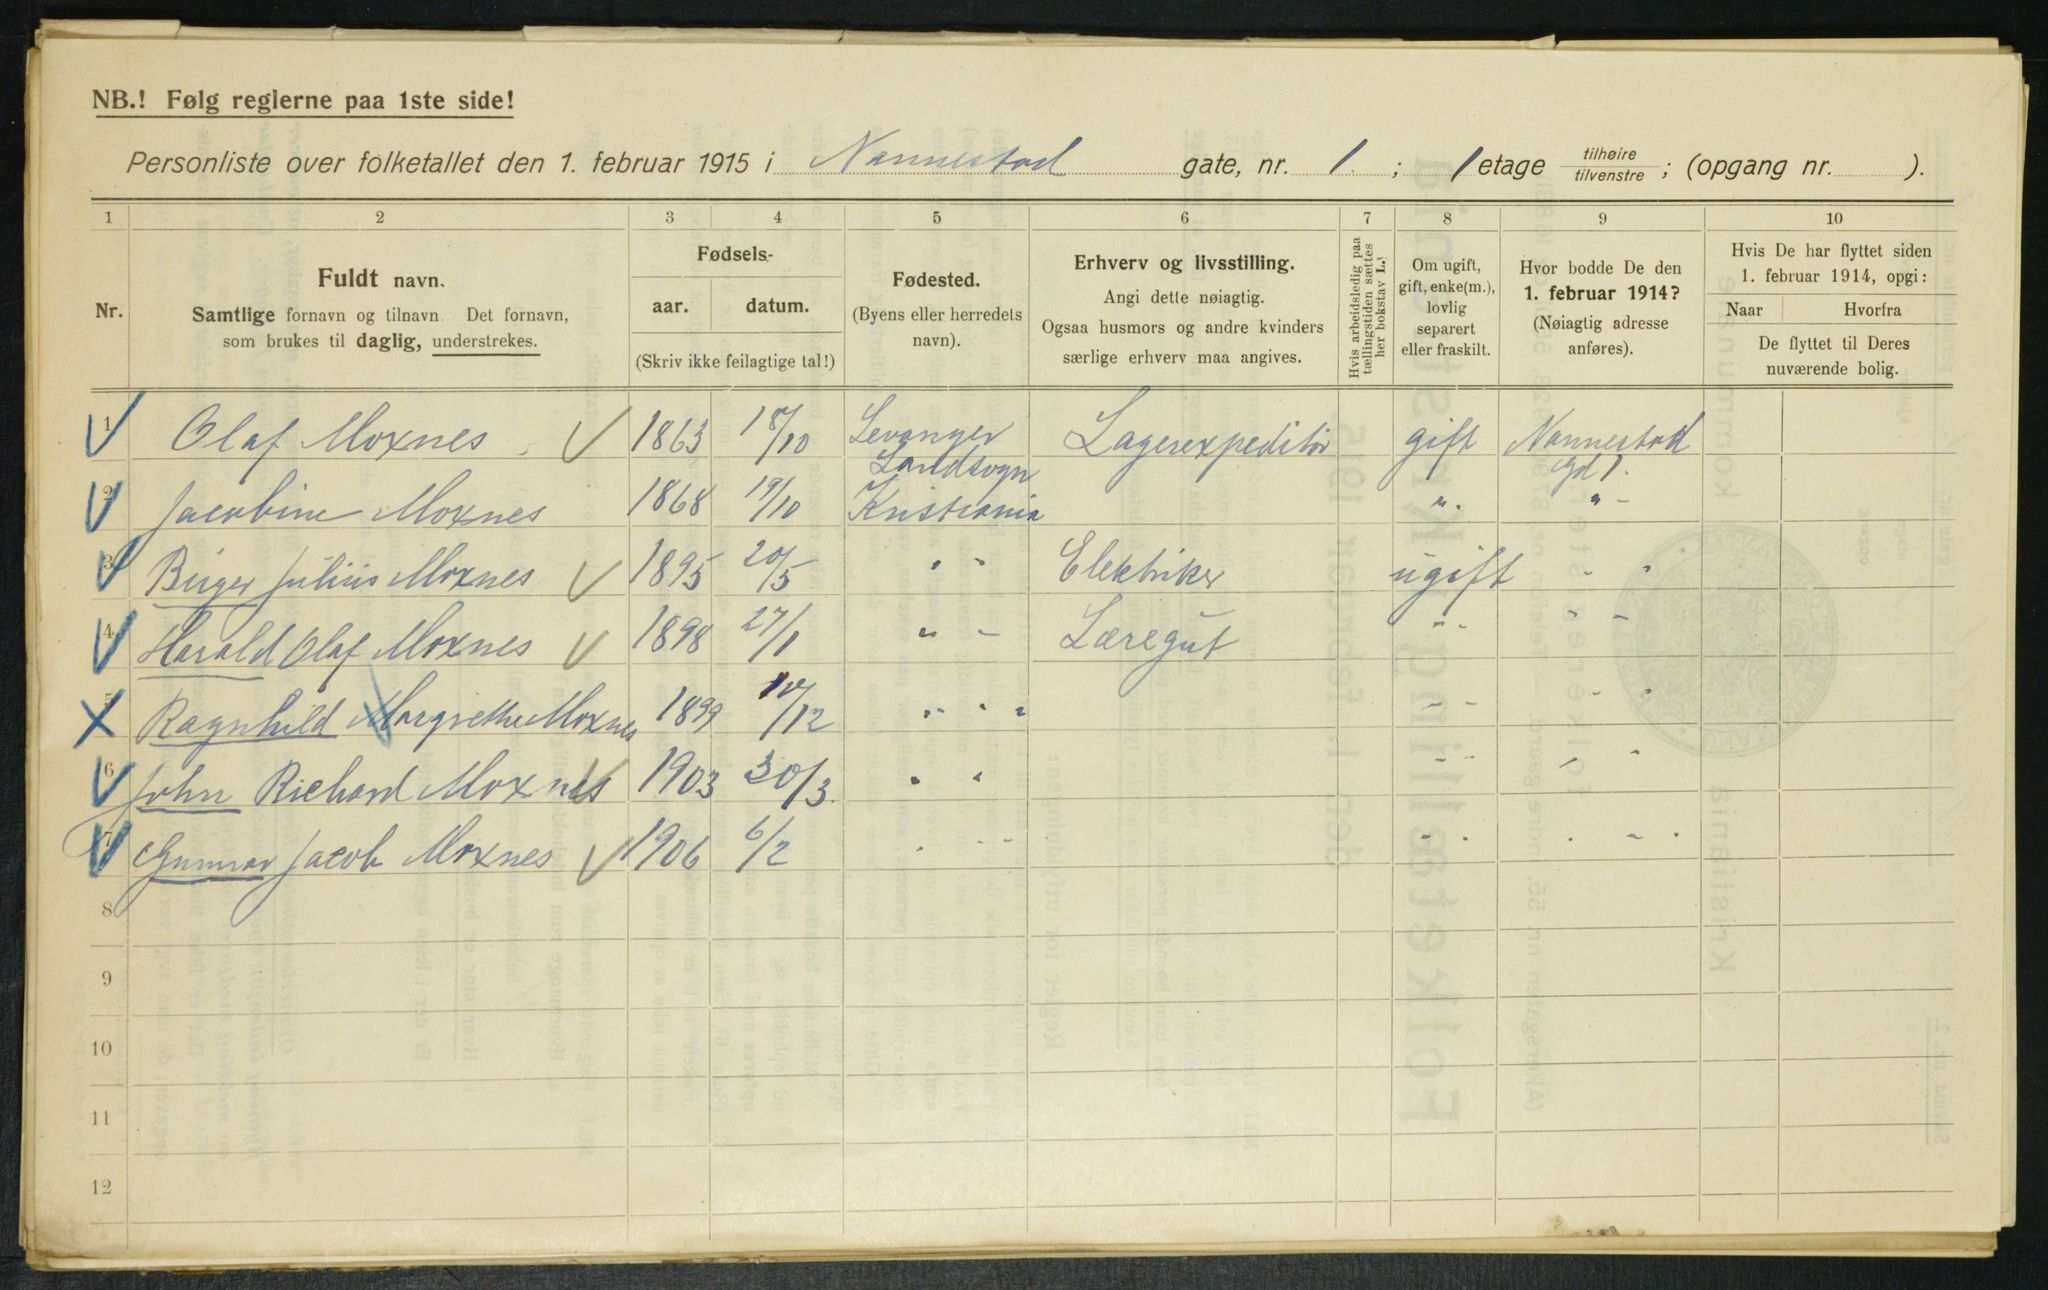 NB.! Følg reglerne paa 1ste side!
Personliste over folketallet den 1. februar 1915 i Nannestad gate, nr. 1. ; 1 etage tilhøire tilvenstre ; (opgang nr. ).
1 2 3 4 5 6 7 8 9 10
Nr.
Fuldt navn.
Samtlige fornavn og tilnavn. Det fornavn,
som brukes til daglig, understrekes.
Fødsels-
aar. datum.
(Skriv ikke feilagtige tal!)
Fødested.
(Byens eller herredets
navn).
Erhverv og livsstilling.
Angi dette nøiagtig.
Ogsaa husmors og andre kvinders
særlige erhverv maa angives.
Hvis arbeidsledig paa
tællingstiden sættes
her bokstav L.
Om ugift,
gift, enke(m.),
lovlig
separert
eller fraskilt.
Hvor bodde De den
1. februar 1914?
(Nøiagtig adresse
anføres).
Hvis De har flyttet siden
1. februar 1914, opgi:
Naar Hvorfra
De flyttet til Deres
nuværende bolig.
1 Olaf Moxnes 1863 18/10 Levanger Lagerexpeditør gift Nannestad
Landsogn gd 1.
2 Jacobine Moxnes 1868 19/10 Kristiania " . " -
3 Birger Julius Moxnes 1895 20/5 " " Elektriker ugift " "
4 Harald Olaf Moxnes 1898 27/1 " - Læregut " " " -
5 Ragnhild Margrethe Moxnes 1899 10/12 " " " - - - "
6 John Richard Moxnes 1903 30/3. " " " - " "
7 Gunnar Jacob Moxnes 1906 6/2 . - - - . . - .
8
9
10
11
12